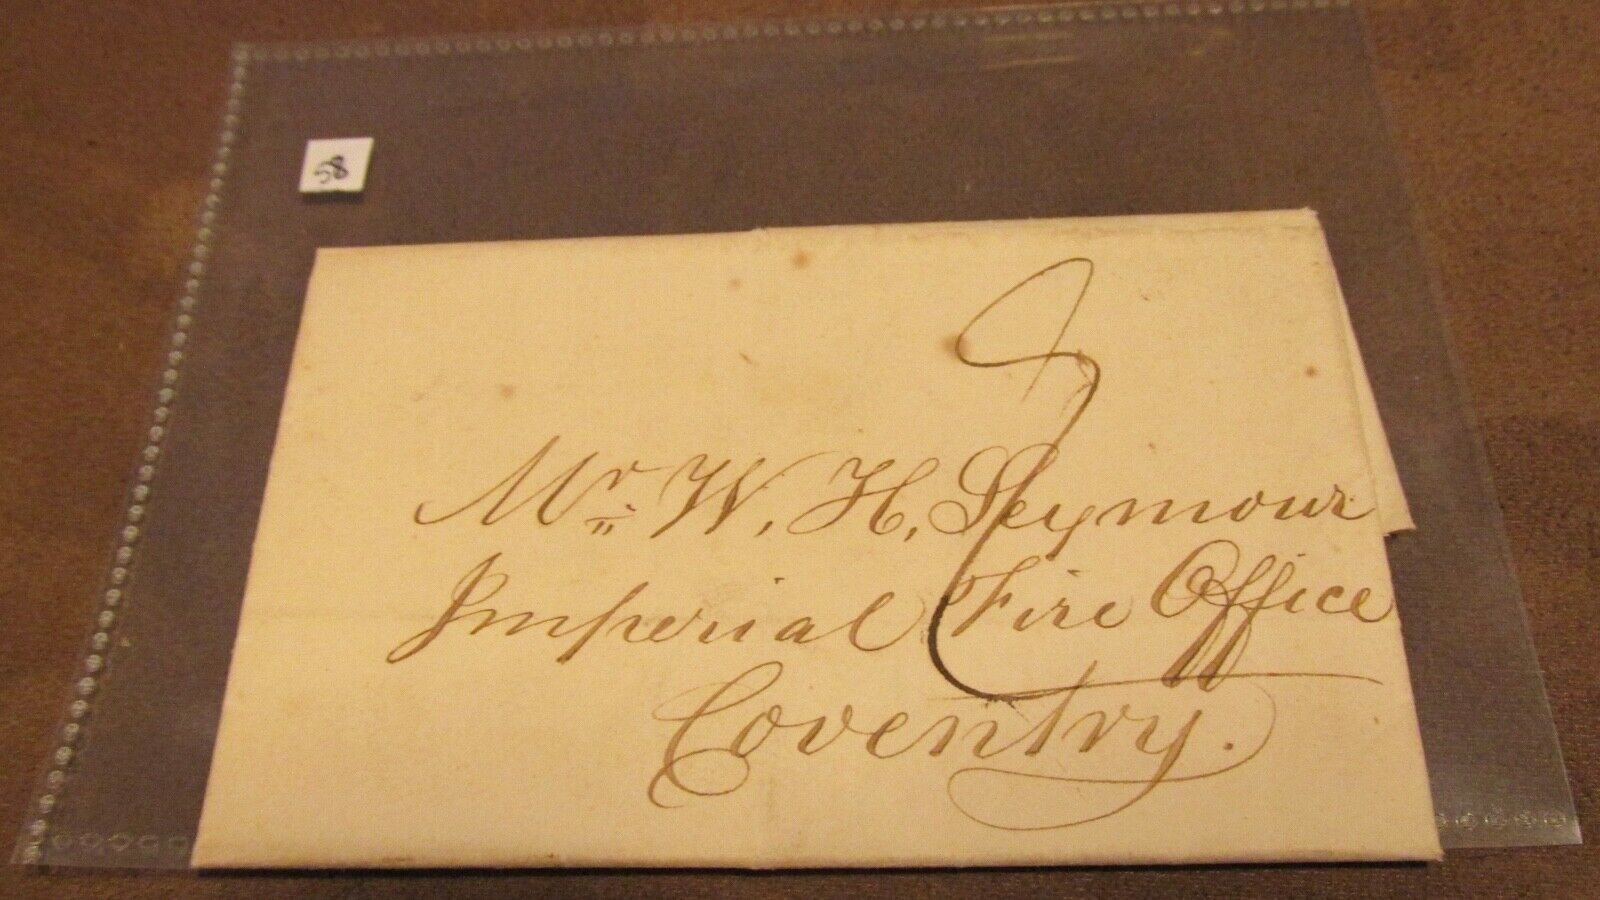 58
Mr. W. H. Seymour
Imperial Fire Office
Coventry.